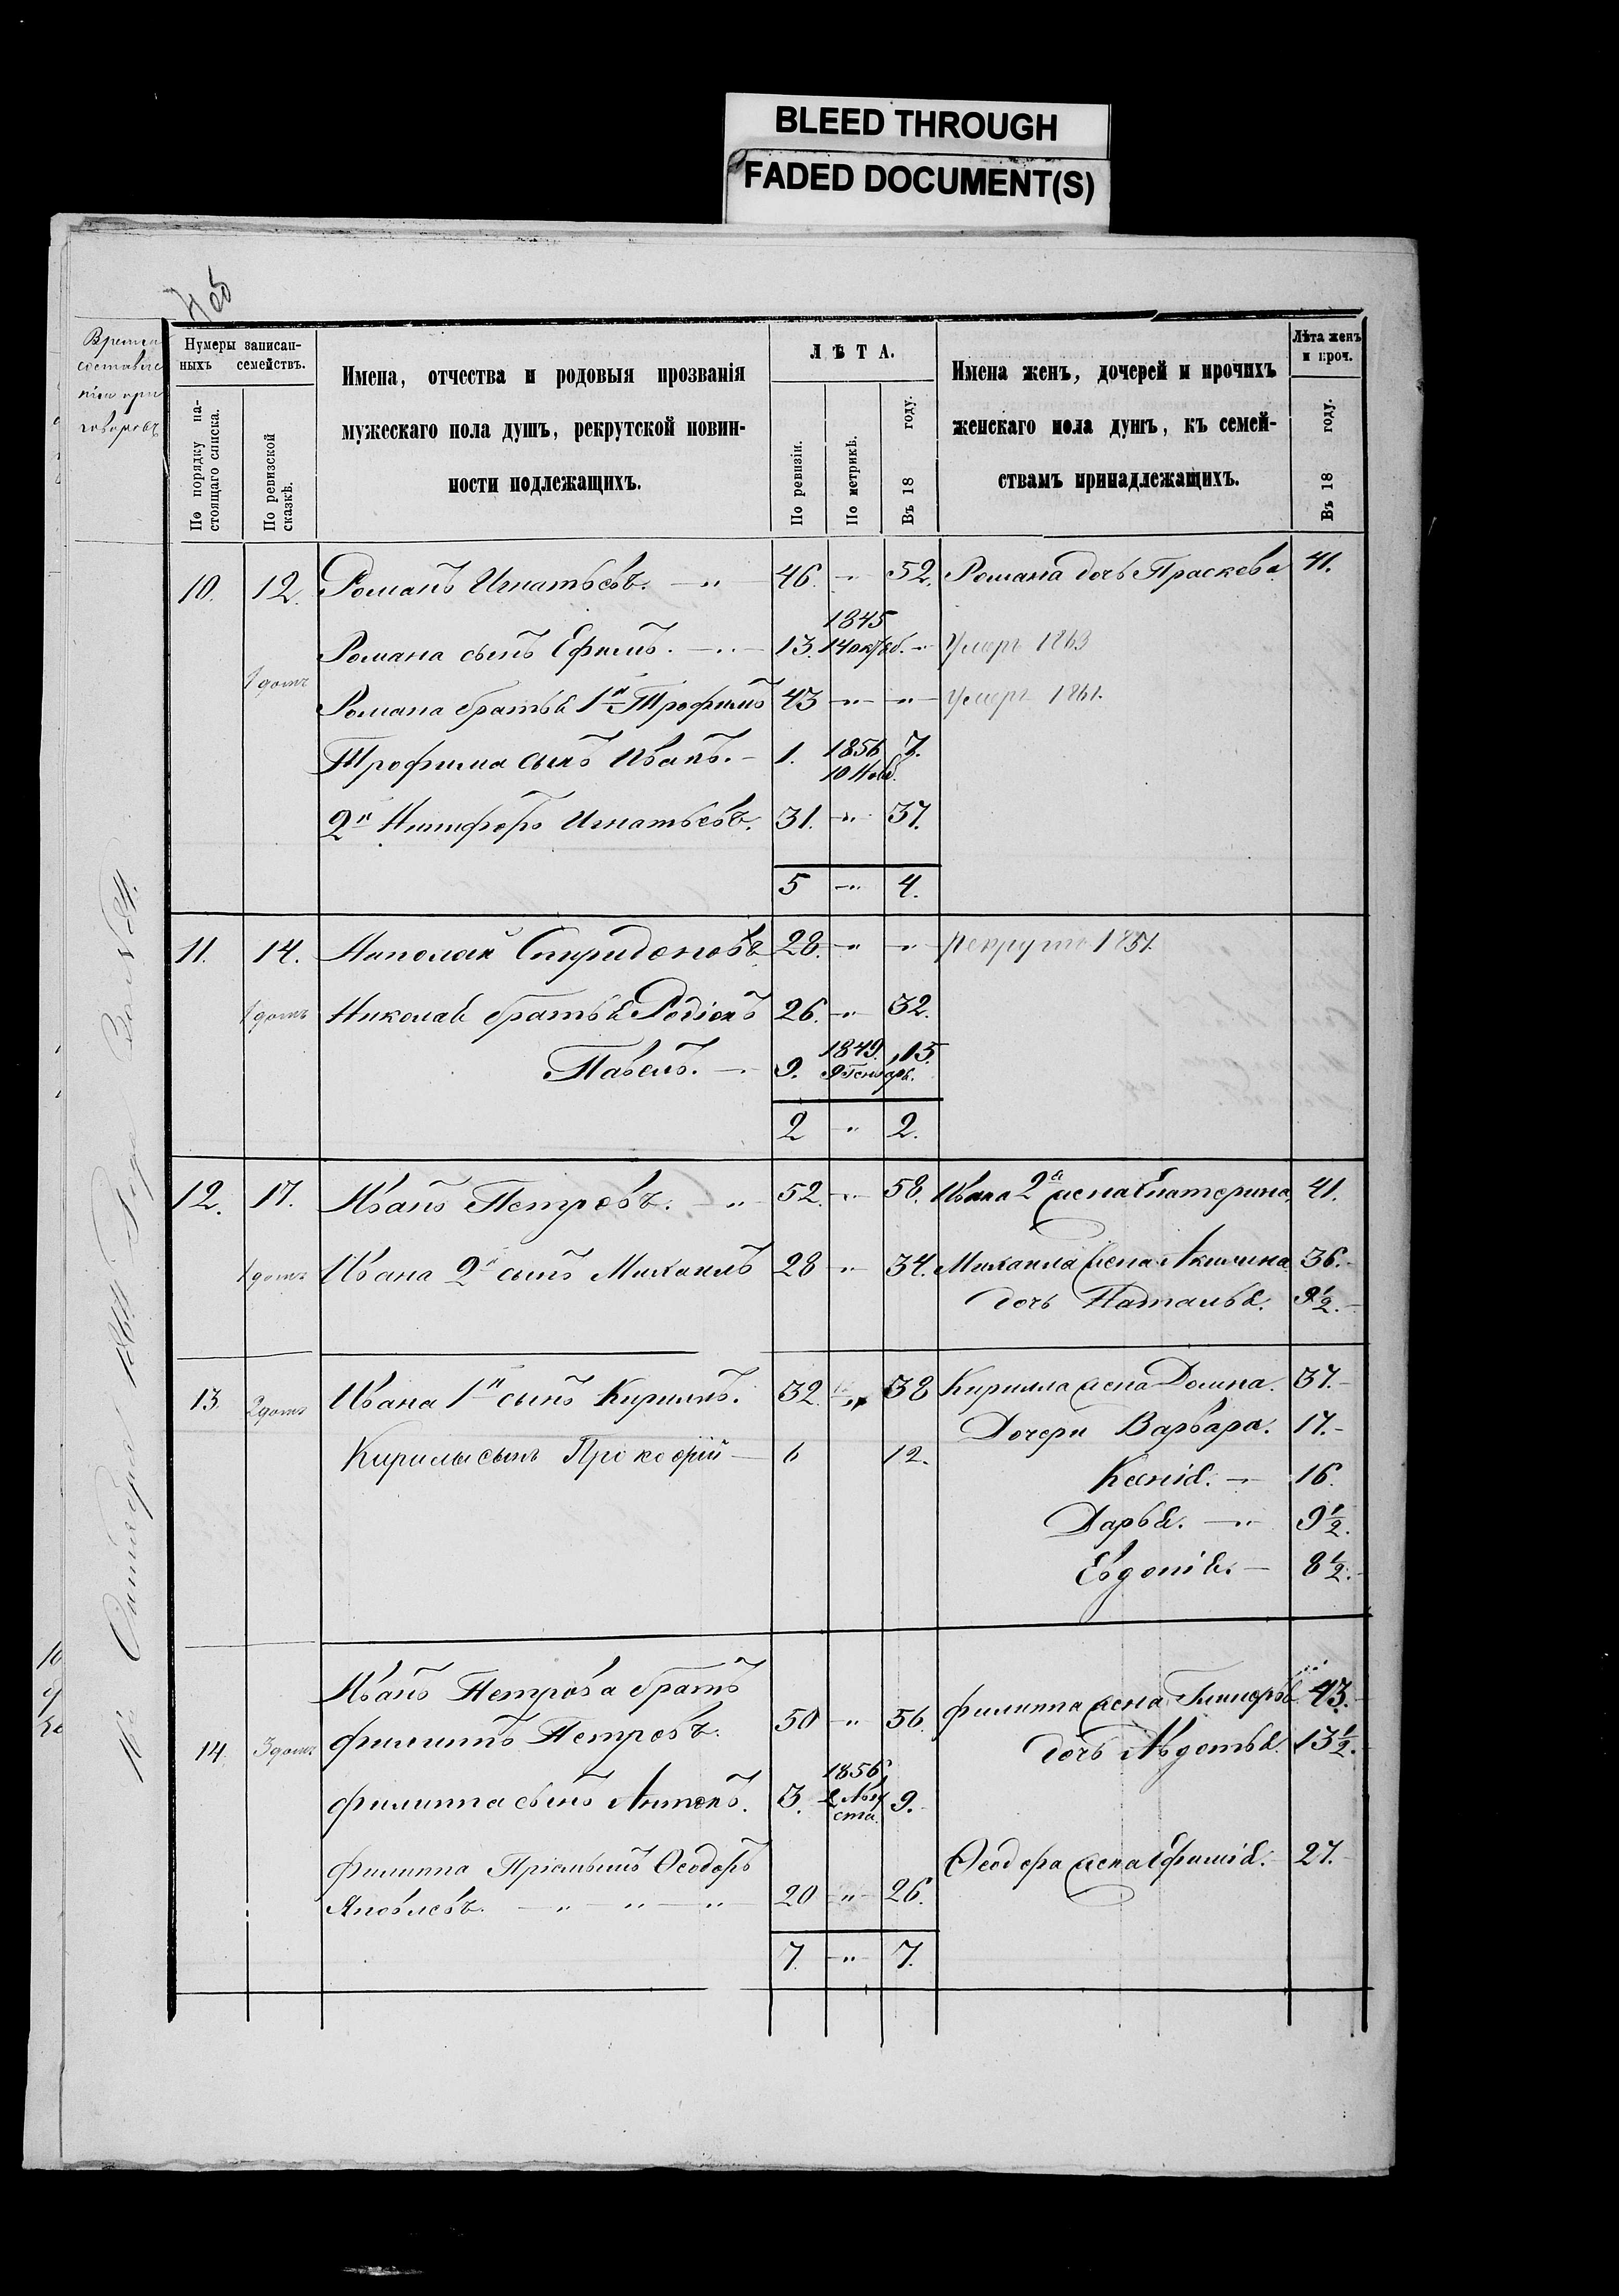 BLEED THROUGH
FADED DOCUMENT(S)
Время
составле
нія при
говоровъ
Нумеры записан-
ныхъ семействъ.
По порядку на-
стоящаго списка.
По ревизской
сказкѣ.
Имена, отчества и родовыя прозванія
мужескаго пола душъ, рекрутской повин-
ности подлежащихъ.
ЛѢТА.
По ревизіи.
По метрикѣ.
Въ 18 году.
Имена женъ, дочерей и прочихъ
женскаго пола душъ, къ семей-
ствамъ принадлежащихъ.
Лѣта женъ
и проч.
Въ 18 году.
10. 12. Романъ Игнатьевъ. 46. " 52. Романа дочь Прасковья 41.
1845
Романа сынъ Ефимъ. 13. 14 октяб. " Умеръ 1863
1 домъ
Романа братья 1й Трофимъ 43 " " Умеръ 1861.
Трофима сынъ Иванъ. 1. 1856 7.
10 Нояб.
2й Никифоръ Игнатьевъ. 31. " 37.
5 " 4.
11. 14. Николай Спиридоновъ 28. " " рекрутъ 1851.
1 домъ Николая братья Родіонъ 26. " 32.
Павелъ. 9. 1849. 15.
9 Генварь.
2 " 2.
12. 17. Иванъ Петровъ. " 52. " 58. Ивана 2я жена Екатерина 41.
1 домъ Ивана 2й сынъ Михаилъ 28 " 34. Михаила жена Акилина 36.
дочь Наталья. 9½.
13. 2 домъ Ивана 1й сынъ Кирилъ. 32. 38 Кирилла жена Домна. 37.
Дочери Варвара. 17.
Кирилы сынъ Прокофій 6 12.
Ксенія. 16.
Дарья. " 9½.
Евдокія. 8½.
Иванъ Петрова братъ
14. 3 домъ Филиппъ Петровъ. 50 " 56. Филиппа жена Гликерья 43.
дочь Авдотья. 13½.
1856
Филиппа сынъ Антонъ. 3. 2 Авгу 9.
ста.
Филиппа Пріемышъ Ѳеодоръ
Яковлевъ. " " " 20 " 26. Ѳеодора жена Ефимія. 27.
7. " 7.
16 Октября 1864 Года